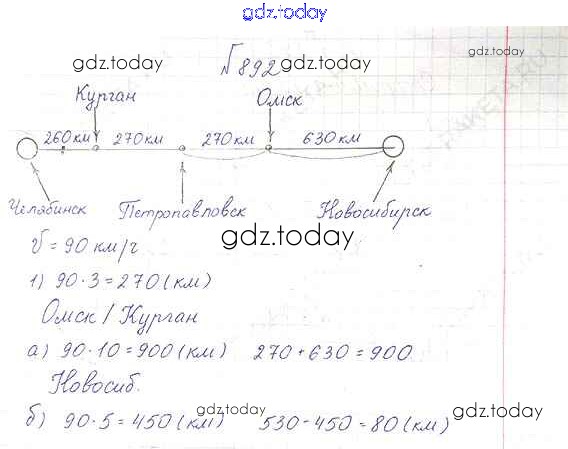 gdz.today
gdz.today №892 gdz.today
Курган Омск
260 км 270 км 270 км 630 км
Челябинск Петропавловск Новосибирск
gdz.today
V = 90 км/г
1) 90·3=270(км)
Омск / Курган
а) 90·10=900(км) 270+630=900
Новосиб.
б) 90·5=450(км) 530-450=80(км)
gdz.today gdz.today
ПАКЕТА.RU